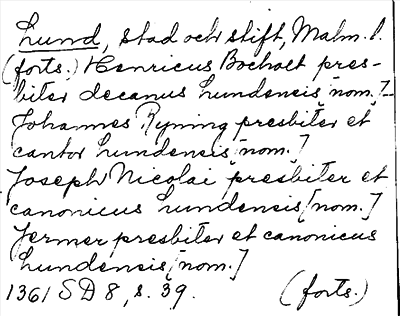 Lund, stad och stift, Malm. l.
(forts.) Henricus Bocholt pres-
biter decanus Lundensis [nom.] -
Johannes Ryning presbiter et
cantor Lundensis [nom.]
Joseph Nicolai presbiter et
canonicus Lundensis [nom.]
Jermer presbiter et canonicus
Lundensis [nom.]
1361 SD 8, s. 39. (forts.)